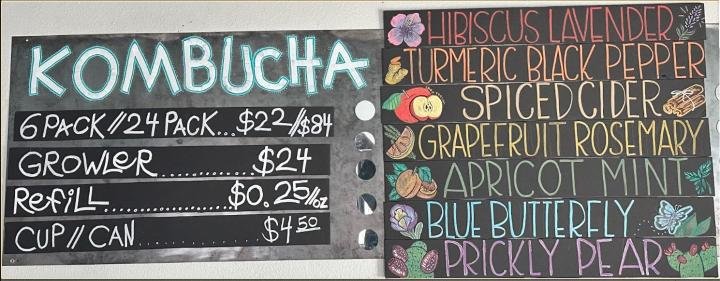 KOMBUCHA
6 PACK // 24 PACK... $22/$84
GROWLER ............. $24
Refill ................. $0.25//oz
CUP // CAN ............. $4.50
HIBISCUS LAVENDER
TURMERIC BLACK PEPPER
SPICED CIDER
GRAPEFRUIT ROSEMARY
APRICOT MINT
BLUE BUTTERFLY
PRICKLY PEAR